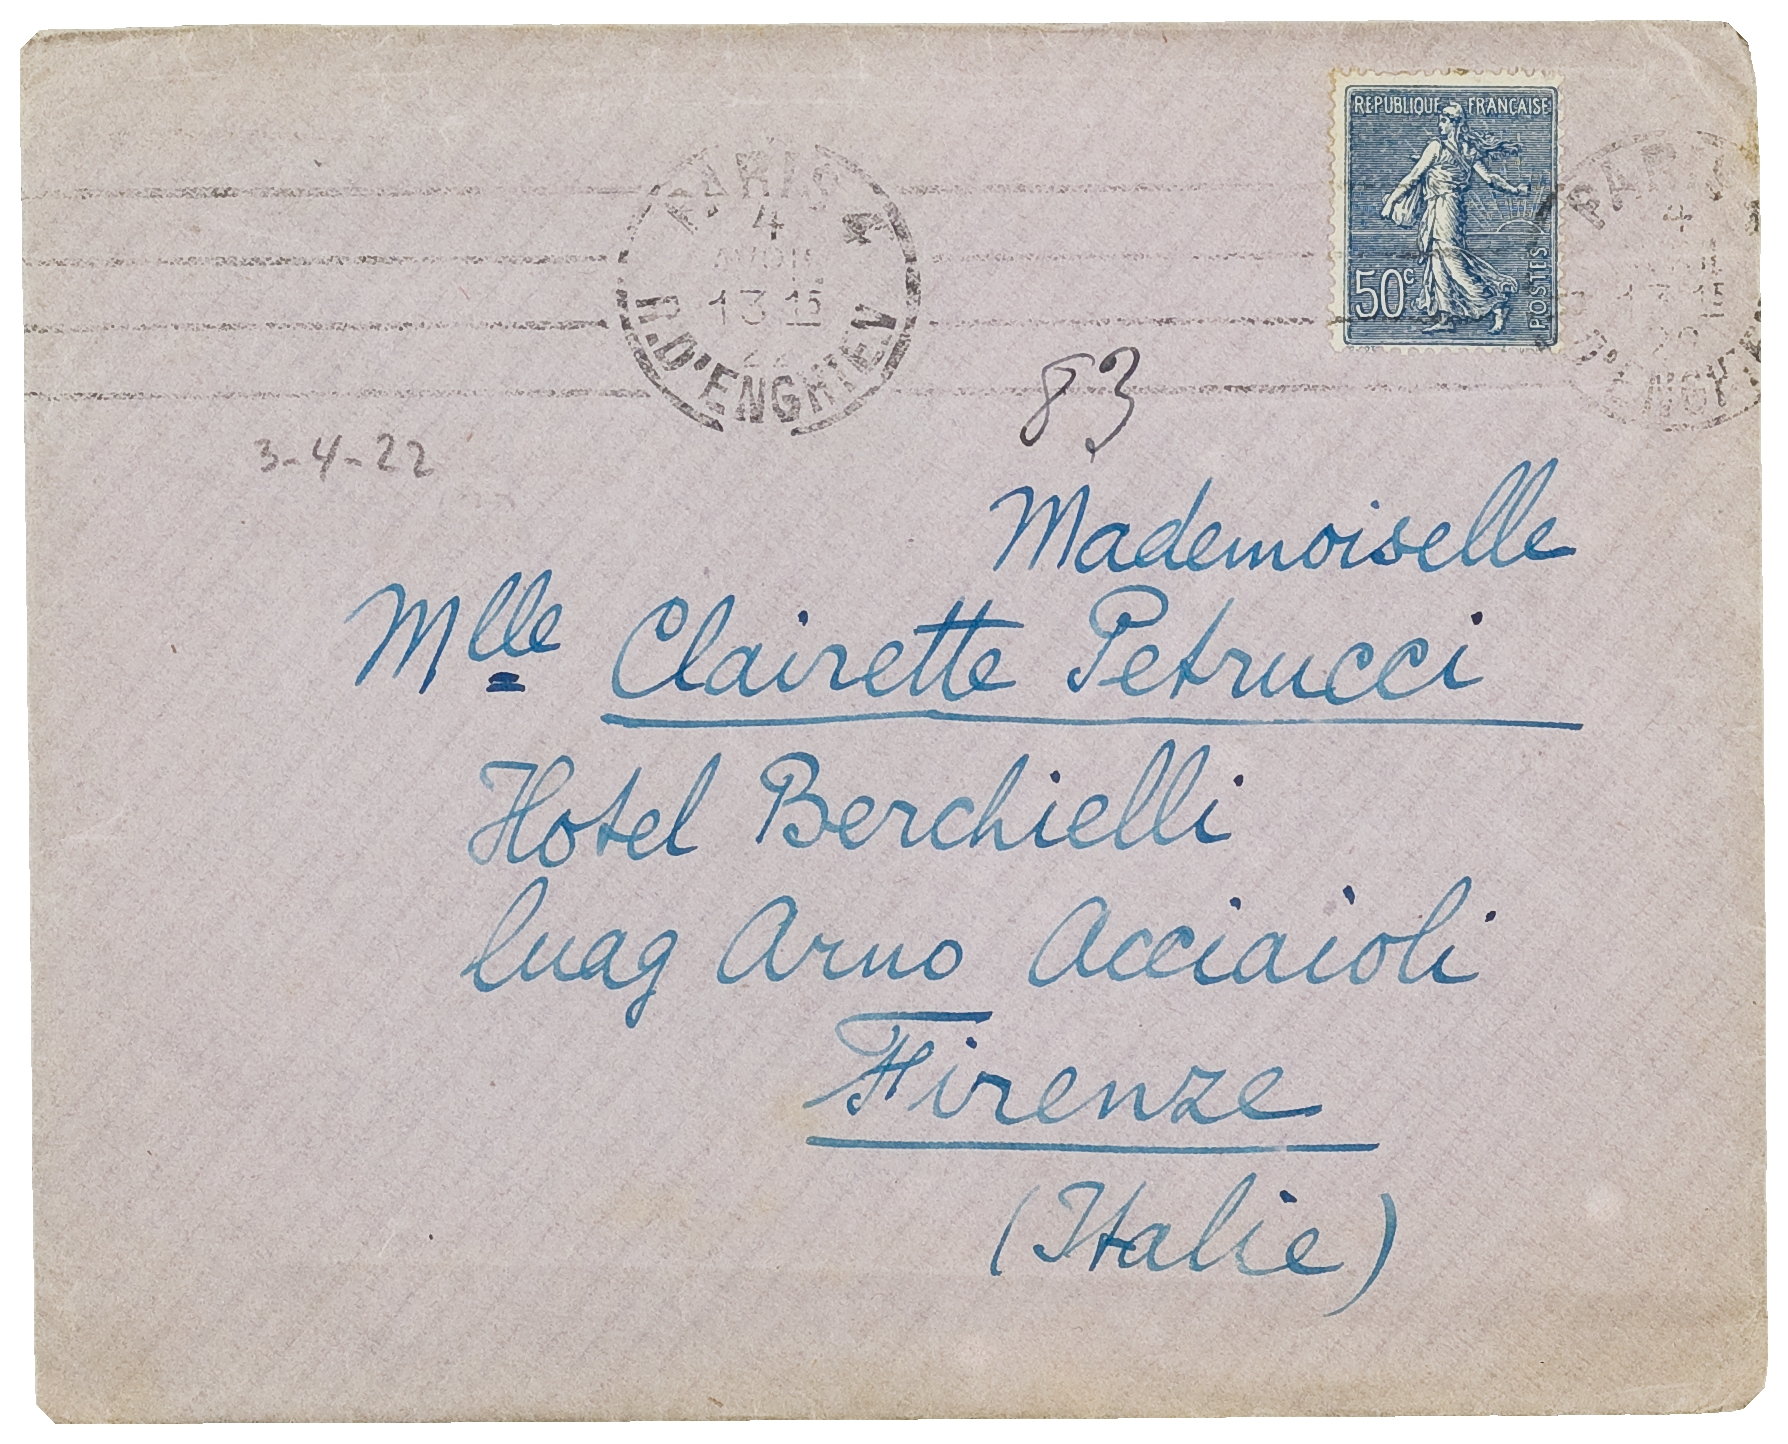 REPUBLIQUE FRANÇAISE
50c
POSTES
PARIS
4
AVRIL
13 15
22
R. D'ENGHIEN
83
3-4-22
Mademoiselle
Mlle Clairette Petrucci
Hotel Berchielli
luag Arno Acciaioli
Firenze
(Italie)